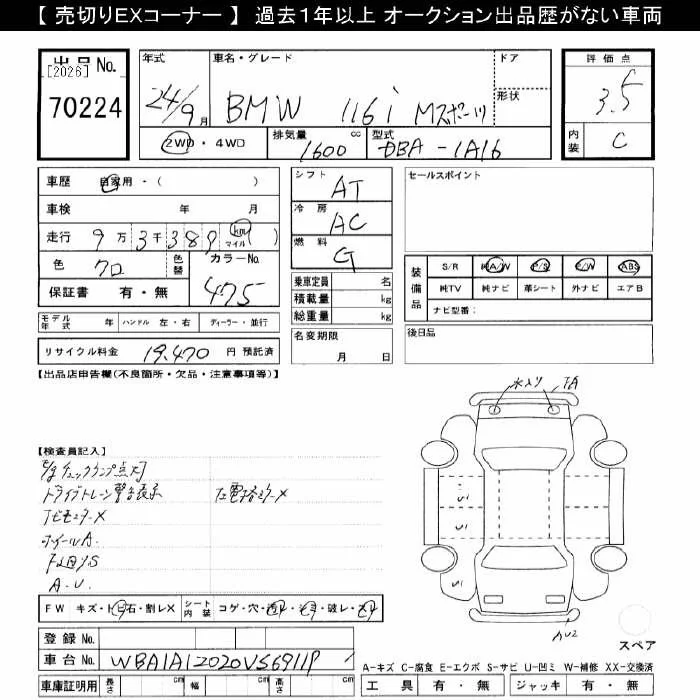 【 売切りEXコーナー 】 過去１年以上 オークション出品歴がない車両
出品No.
[2026]
70224
年式
24/9月
車名・グレード
BMW 116i Mスポーツ
ドア
形状
評価点
3.5
内装
C
2WD・4WD
排気量
1600 cc
型式
DBA-1A16
車歴 自家用・( )
車検 年 月
走行 9万3千389 km マイル ( )
色 クロ
色替
カラーNo.
475
保証書 有・無
モデル年式 年 ハンドル 左・右 ディーラー・並行
リサイクル料金 19,470 円 預託済
シフト AT
冷房 AC
燃料 G
乗車定員 名
積載量 kg
総重量 kg
名変期限
月 日
セールスポイント
装備品
S/R 純A/W P/S P/W ABS
純TV 純ナビ 革シート 外ナビ エアB
ナビ型番:
後日品
【出品店申告欄(不良箇所・欠品・注意事項等)】
水入り
【検査員記入】
チェックランプ点灯
ドライブトレーン警告表示
ナビモニターX
ホイールA
A・U
U1
U1
U1
AU2
FW キズ・トビ石・割レX
シート内装 コゲ・穴・汚レ・シミ・破レ・スレ
登録No.
車台No. WBA1A12020VS69119
車庫証明用 長さ cm 幅 cm 高さ cm
スペア
A-キズ C-腐食 E-エクボ S-サビ U-凹ミ W-補修 XX-交換済
工具 有・無 ジャッキ 有・無